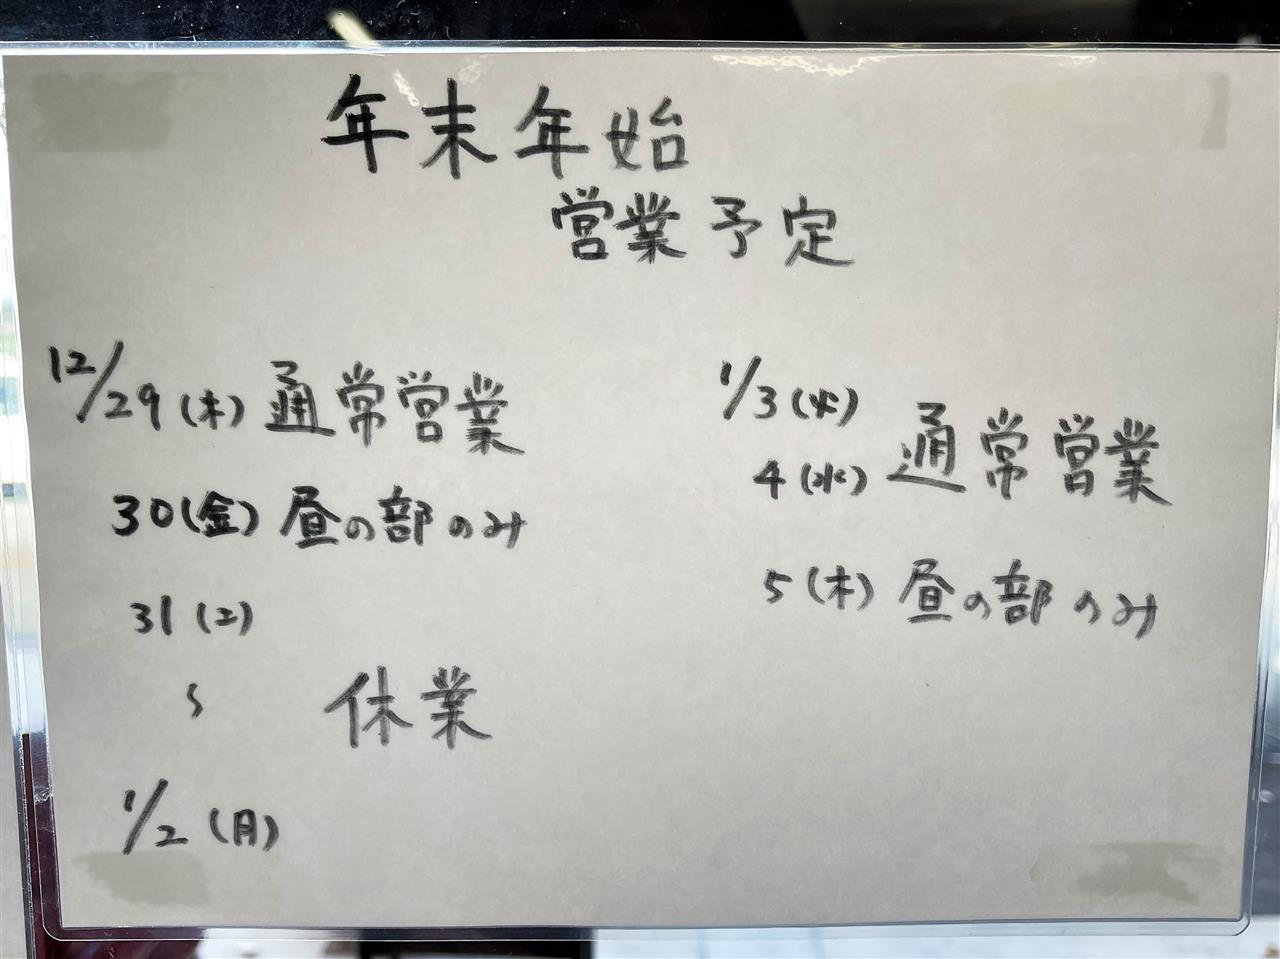 年末年始
営業予定
12/29(木) 通常営業
30(金) 昼の部のみ
31(土)
〜 休業
1/2(月)
1/3(火)
4(水) 通常営業
5(木) 昼の部のみ